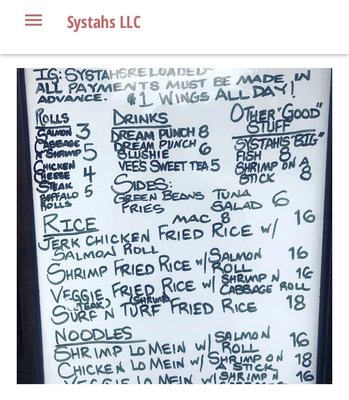 Systahs LLC
IG: SYSTAHSRELOADED
ALL PAYMENTS MUST BE MADE IN
ADVANCE. $1 WINGS ALL DAY!
ROLLS
SALMON 3
CABBAGE
N SHRIMP 5
CHICKEN
CHEESE 4
STEAK 5
BUFFALO
ROLLS
DRINKS
DREAM PUNCH 8
DREAM PUNCH
SLUSHIE 6
VEES SWEET TEA 5
OTHER "GOOD"
STUFF
SYSTAHS "BIG"
FISH 8
SHRIMP ON A
STICK 8
SIDES:
GREEN BEANS TUNA
FRIES SALAD 6
MAC 8
RICE 16
JERK CHICKEN FRIED RICE W/
SALMON ROLL
SHRIMP FRIED RICE W/ SALMON 16
ROLL
VEGGIE FRIED RICE W/ SHRIMP N 16
CABBAGE ROLL
STEAK, SHRIMP
SURF N TURF FRIED RICE 18
NOODLES
SHRIMP LO MEIN W/ SALMON 16
ROLL
CHICKEN LO MEIN W/ SHRIMP ON 18
A STICK
VEGGIE LO MEIN W/ SHRIMP N 16